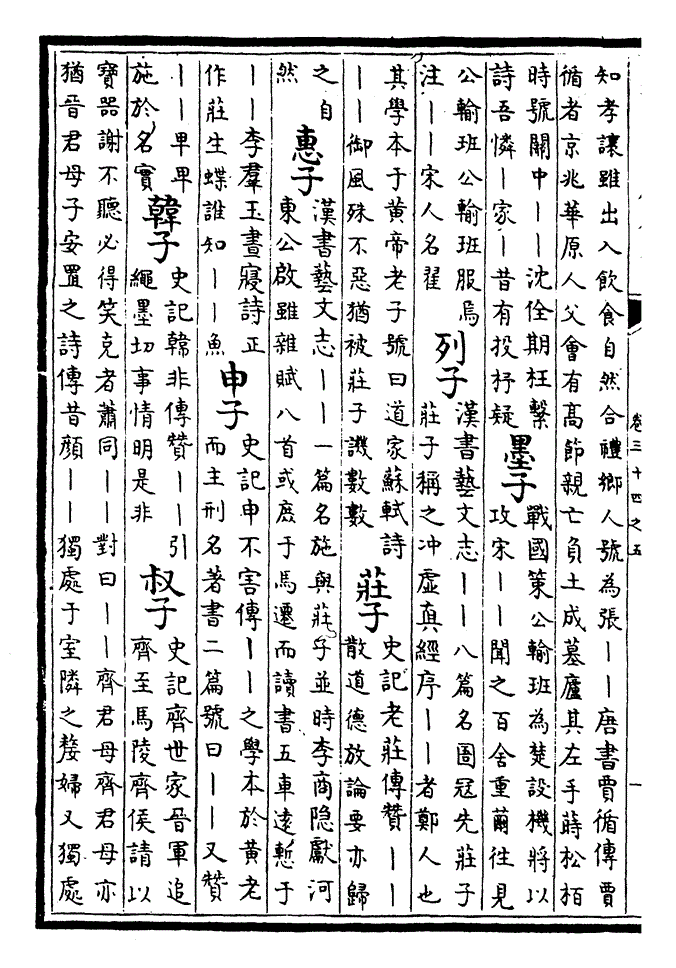 知孝讓雖出入飲食自然合禮鄉人號為張丨丨唐書賈循傳賈
循者京兆華原人父會有髙節親亡負土成墓廬其左手蒔松栢
時號關中丨丨沈佺期枉繫
詩吾憐丨家丨昔有投杼疑
墨子
戰國策公輸班為楚設機將以
攻宋丨丨聞之百舍重繭往見
公輸班公輸班服焉
注丨丨宋人名翟
列子
漢書藝文志丨丨八篇名圄冠先莊子
莊子稱之冲虛真經序丨丨者鄭人也
其學本于黄帝老子號曰道家蘇軾詩
丨丨御風殊不惡猶被莊子譏數數
莊子
史記老莊傳贊丨丨
散道德放論要亦歸
之自
然
惠子
漢書藝文志丨丨一篇名施與莊子並時李商隐獻河
東公啟雖雜賦八首或庶于馬遷而讀書五車逺慙于
丨丨李羣玉晝寢詩正
作莊生蝶誰知丨丨魚
申子
史記申不害傳丨丨之學本於黄老
而主刑名著書二篇號曰丨丨又贊
丨丨卑卑
施於名實
韓子
史記韓非傳贊丨丨引
繩墨切事情明是非
叔子
史記齊世家晉軍追
齊至馬陵齊侯請以
寶器謝不聽必得笑克者蕭同丨丨對曰丨丨齊君母齊君母亦
猶晉君母子安置之詩傳昔顔丨丨獨處于室隣之嫠婦又獨處
卷三十四之五
一